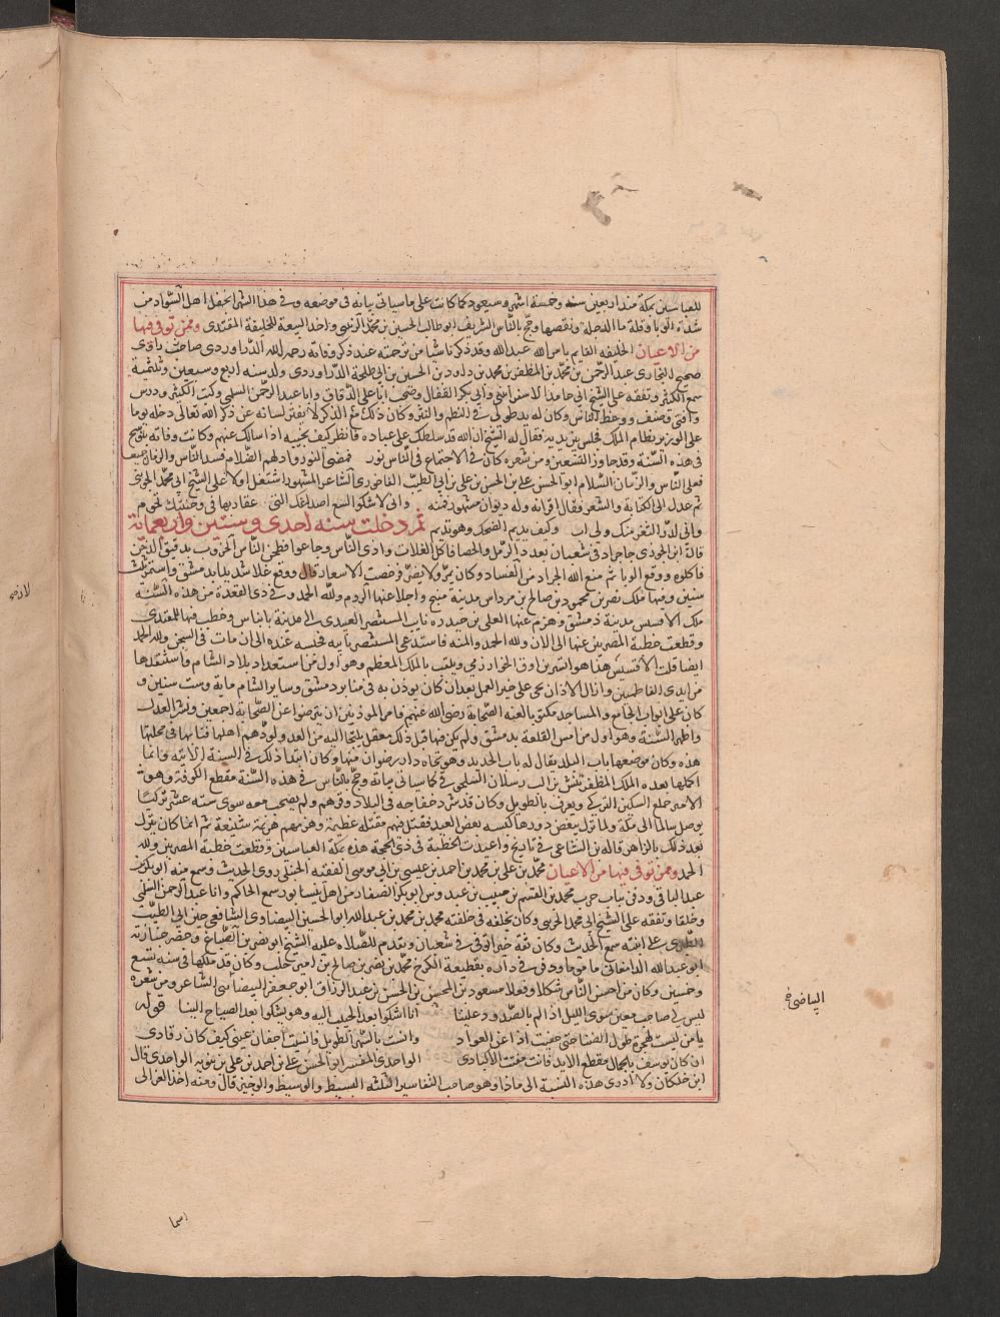 للعباسيين بمكة منذ اربعين سنه وخمسة اشهر وسيعود كما كانت على ماسياتى بيانه فى موضعه وفى هذا الشهر انجفل اهل السواد من
شدة الوبا وقلة ما الدجلة ونقصها وحج بالناس الشريف ابو طالب الحسين بن محمد الزينبى واخذ البيعة للخليفة المقتدى وممن توفى فيها
من الاعيان الخليفه القايم بامر الله عبدالله وقد ذكرنا شيا من ترجمته عند ذكر وفاته رحمه الله الداوردى صاحب راوى
صحيح البخارى عبد الرحمن بن محمد بن المظفر بن محمد بن داود بن الحسين بن ابى طلحة الداوردى ولد سنه اربع وسبعين وثلثمية
سمع الكثير وتفقه على الشيخ ابى حامد الاسفراينى وابى بكر القفال وصحب ابا على الدقاق وابا عبد الرحمن السلمى وكتب الكثير ودرس
وافتى وصنف ووعظ الناس وكان له يد طولى فى النظم والنثر وكان ذلك مع الذكر لا يفتر لسانه عن ذكر الله تعالى دخله يوما
على الوزير نظام الملك فجلس بين يديه فقال له الشيخ ان الله قد سلطك على عباده فانظر كيف تجيبه اذا سالك عنهم وكانت وفاته ببوشنج
فى هذه السنة وقد جاوز التسعين ومن شعره كان فى الاجتماع فى الناس نور فمضى النور وادلهم الظلام فسد الناس والزمان جميعا
فعلى الناس والزمان السلام ابو الحسن على بن الحسن بن على بن ابى الطيب الباخرزى الشاعر المشهور اشتغل اولا على الشيخ ابى محمد الجوينى
ثم عدل الى الكتابة والشعر ففاق اقرانه وله ديوان مشهور فمنه وانى لاشكو لسع اصداغك التى عقاربها فى وجنتيك تحوم
وابكى لدر الثغر منك ولى اب وكيف يديم الضحك وهو يتيم ثم دخلت سنه احدى وستين واربعماية
قال ابن الجوزى جا جراد فى شعبان بعدد الرمل والحصا فاكل الغلات واذى الناس وجاعوا فطحن الناس الخروب بدقيق الدخن
فاكلوه ووقع الوبا ثم منع الله الجراد من الفساد وكان يمر ولا يضر فرخصت الاسعار قال ووقع غلا شديد بدمشق واستمر ثلث
سنين وفيها ملك نصر بن محمود بن صالح بن مرداس مدينة منبج واجلا عنها الروم ولله الحمد وفى ذى القعدة من هذه السنه
ملك الاقسيس مدينة دمشق وهزم عنها المعلى بن حيدره نايب المستنصر العبيدى الى مدينة بانياس وخطب فيها للمقتدى
وقطعت خطبة المصريين عنها الى الان ولله الحمد والمنه فاستدعى المستنصر نايبه فحبسه عنده الى ان مات فى السجن ولله الحمد
ايضا قلت الاقسيس هذا هو اتسز بن اوق الخوارزمى ويلقب بالملك المعظم وهو اول من استعاد بلاد الشام واستنقذها
من ايدى الفاطميين وازال الاذان بحى على خير العمل بعد ان كان يوذن به فى منابر دمشق وساير الشام ماية وست سنين و
كان على ابواب الجامع والمساجد مكتوب لعنه الصحابة رضى الله عنهم فامر الموذنين ان يترضوا عن الصحابة اجمعين ونشر العدل
واظهر السنة وهو اول من اسس القلعة بدمشق ولم يكن فيها قبل ذلك معقل يلتجا اليه من العدو فبناها فى محلتها
هذه وكان موضعها باب البلد يقال له باب الحديد وهو تجاه دار رضوان منها وكان ابتدا ذلك فى السنة الاتيه وانما
اكملها بعده الملك المظفر تتش بن الب رسلان السلجوقى كما سياتى بيانه وحج بالناس فى هذه السنة مقطع الكوفة وهو
الامير خلع السكين التركى ويعرف بالطويل وكان قد شرد خفاجه فى البلاد وقهرهم ولم يصحب معه سوى سته عشر تركيا
يوصل سالما الى مكة ولما نزل ببعض دورها كبسه بعض العبيد فقتل منهم مقتله عظيمة وهزمهم هزيمة شنيعة ثم انما كان ينزل
بعد ذلك بالزاهر قاله بن الساعى فى تاريخه واعيدت الخطبة فى ذى الحجة هذه بمكة العباسيين وقطعت خطبة المصريين ولله
الحمد وممن توفى فيها من الاعيان محمد بن على بن محمد بن احمد بن عيسى بن ابى موسى الفقيه الحنبلى روى الحديث وسمع منه ابو بكر بن
عبد الباقى ودفن بباب حرب محمد بن القسم بن حبيب بن عبدوس ابو بكر الصفار من اهل نيسابور سمع الحاكم وابا عبد الرحمن السلمى
وخلقا وتفقه على الشيخ ابى محمد الجوينى وكان يخلفه فى حلقته محمد بن محمد بن عبد الله ابو الحسين البيضاوى الشافعى ختن ابى الطيب
الطبرى على ابنته سمع الحديث وكان ثقة خيرا توفى فى شعبان وتقدم للصلاه عليه الشيخ ابو نصر بن الصباغ وحضر جنازته
ابو عبد الله الدامغانى ماموما ودفن فى داره بقطيعة الكرخ محمد بن نصر بن صالح بن امير حلب وكان قد ملكها فى سنه تسع
وخمسين وكان من احسن الناس شكلا وفعلا مسعود بن المحسن بن الحسن بن عبد الرزاق ابو جعفر البياضى الشاعر ومن شعره
ليس لى صاحب معين سوى الليل اذا لم بالصد ودعلينا انا اشكو بعد الحبيب اليه وهو يشكو بعد الصباح الينا قوله
يا من لبست لهجره طول الضنا حتى خفيت اذا عن العواد وانست بالسهر الطويل فانسيت اجفان عينى كيف كان رقادى
ان كان يوسف بالجمال مقطع الايد فانت مفتت الاكباد الواحدى المفسر ابو الحسن على بن احمد بن على بن بويه الواحدى قال
ابن خلكان ولا ادرى هذه النسبة الى ماذا وهو صاحب التفاسير الثلثه البسيط والوسيط والوجيز قال ومنه اخذ الغزالى
البياضى
اسما